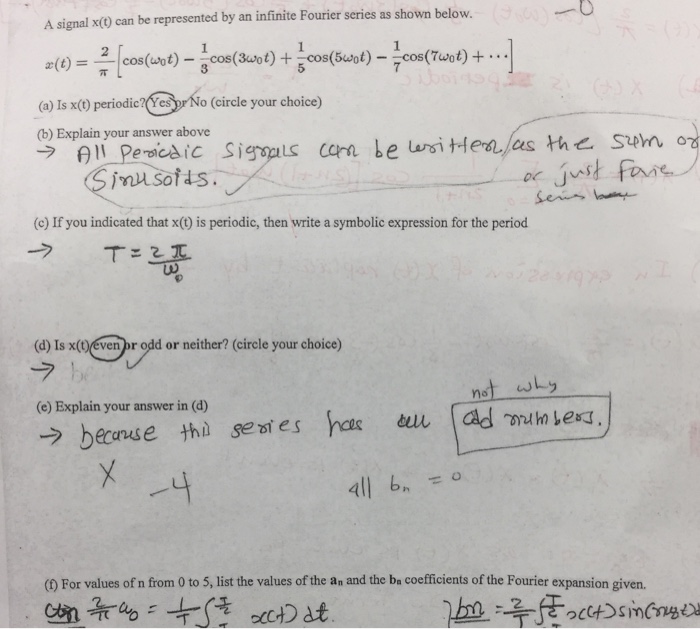 A signal x(t) can be represented by an infinite Fourier series as shown below.
-0
x(t) = 2/π [cos(ω₀t) − 1/3 cos(3ω₀t) + 1/5 cos(5ω₀t) − 1/7 cos(7ω₀t) + ⋯]
(a) Is x(t) periodic? Yes or No (circle your choice)
(b) Explain your answer above
→ All Periodic Signals can be written as the sum of
Sinusoids. or just
series
(c) If you indicated that x(t) is periodic, then write a symbolic expression for the period
→ T = 2π/ω₀
(d) Is x(t) even or odd or neither? (circle your choice)
→
not why
(e) Explain your answer in (d)
→ because this series has all odd numbers.
X -4 all bₙ = 0
(f) For values of n from 0 to 5, list the values of the aₙ and the bₙ coefficients of the Fourier expansion given.
2/π a₀ = 1/T ∫ x(t) dt. bn = 2/T ∫ x(t) sin(